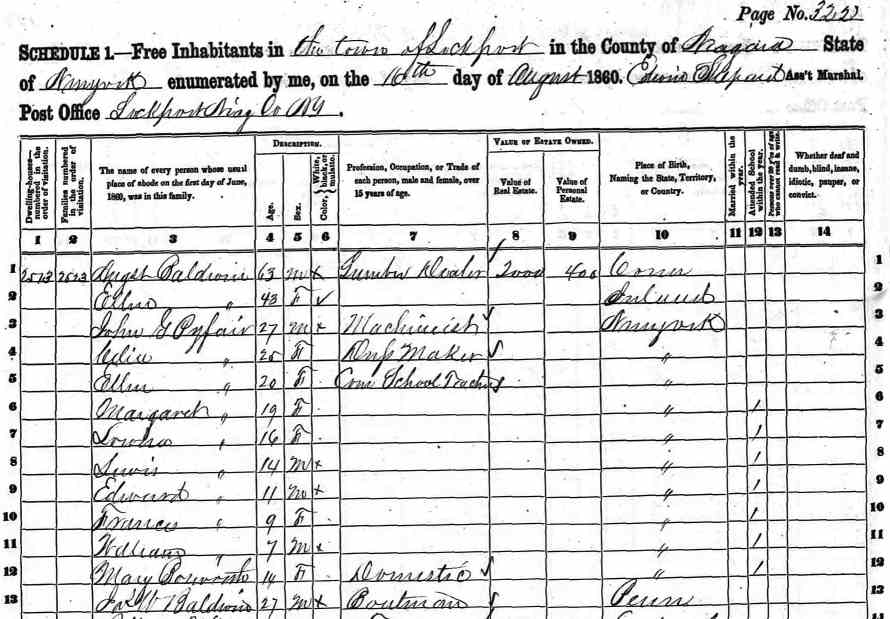 Page No. 32
SCHEDULE 1.—Free Inhabitants in the town of Lockport in the County of Niagara State
of Newyork enumerated by me, on the 16th day of August 1860. Edwin Shepard Ass't Marshal.
Post Office Lockport Niag Co NY.
Dwelling-houses—numbered in the order of visitation.
Families numbered in the order of visitation.
The name of every person whose usual place of abode on the first day of June, 1860, was in this family.
DESCRIPTION.
Age.
Sex.
Color, White, black, or mulatto.
Profession, Occupation, or Trade of each person, male and female, over 15 years of age.
VALUE OF ESTATE OWNED.
Value of Real Estate.
Value of Personal Estate.
Place of Birth, Naming the State, Territory, or Country.
Married within the year.
Attended School within the year.
Persons over 20 y'rs of age who cannot read & write.
Whether deaf and dumb, blind, insane, idiotic, pauper, or convict.
1 2 3 4 5 6 7 8 9 10 11 12 13 14
1 2513 2523 Baldwin 63 m Lumber Dealer 2000 400 Conn 1
2 Ellen " 43 F Ireland 2
3 John G 27 m Machinist Newyork 3
4 Celia " 25 F Dress Maker " 4
5 Ellen " 20 F Com School Teacher " 5
6 Margaret " 19 F " / 6
7 " 16 F " / 7
8 Lewis " 14 m " / 8
9 Edward " 11 m " / 9
10 Frances " 9 F " / 10
11 William " 7 m " / 11
12 Mary 14 F Domestic " / 12
13 W Baldwin 27 m Boatman Penn 13